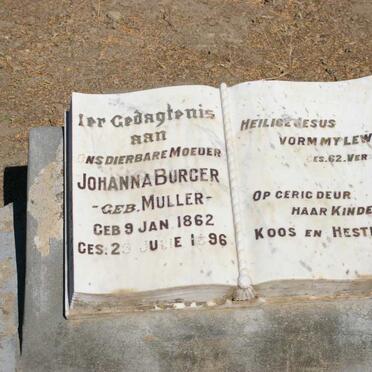 Ter Gedagtenis
aan
ONS DIERBARE MOEDER
JOHANNA BURGER
-GEB. MULLER-
GEB 9 JAN. 1862
GES. 2 JULIE 1896
HEILIGE JESUS
VORM MY LEW
GES. 62. VER
OPGERIG DEUR
HAAR KINDE
KOOS EN HEST